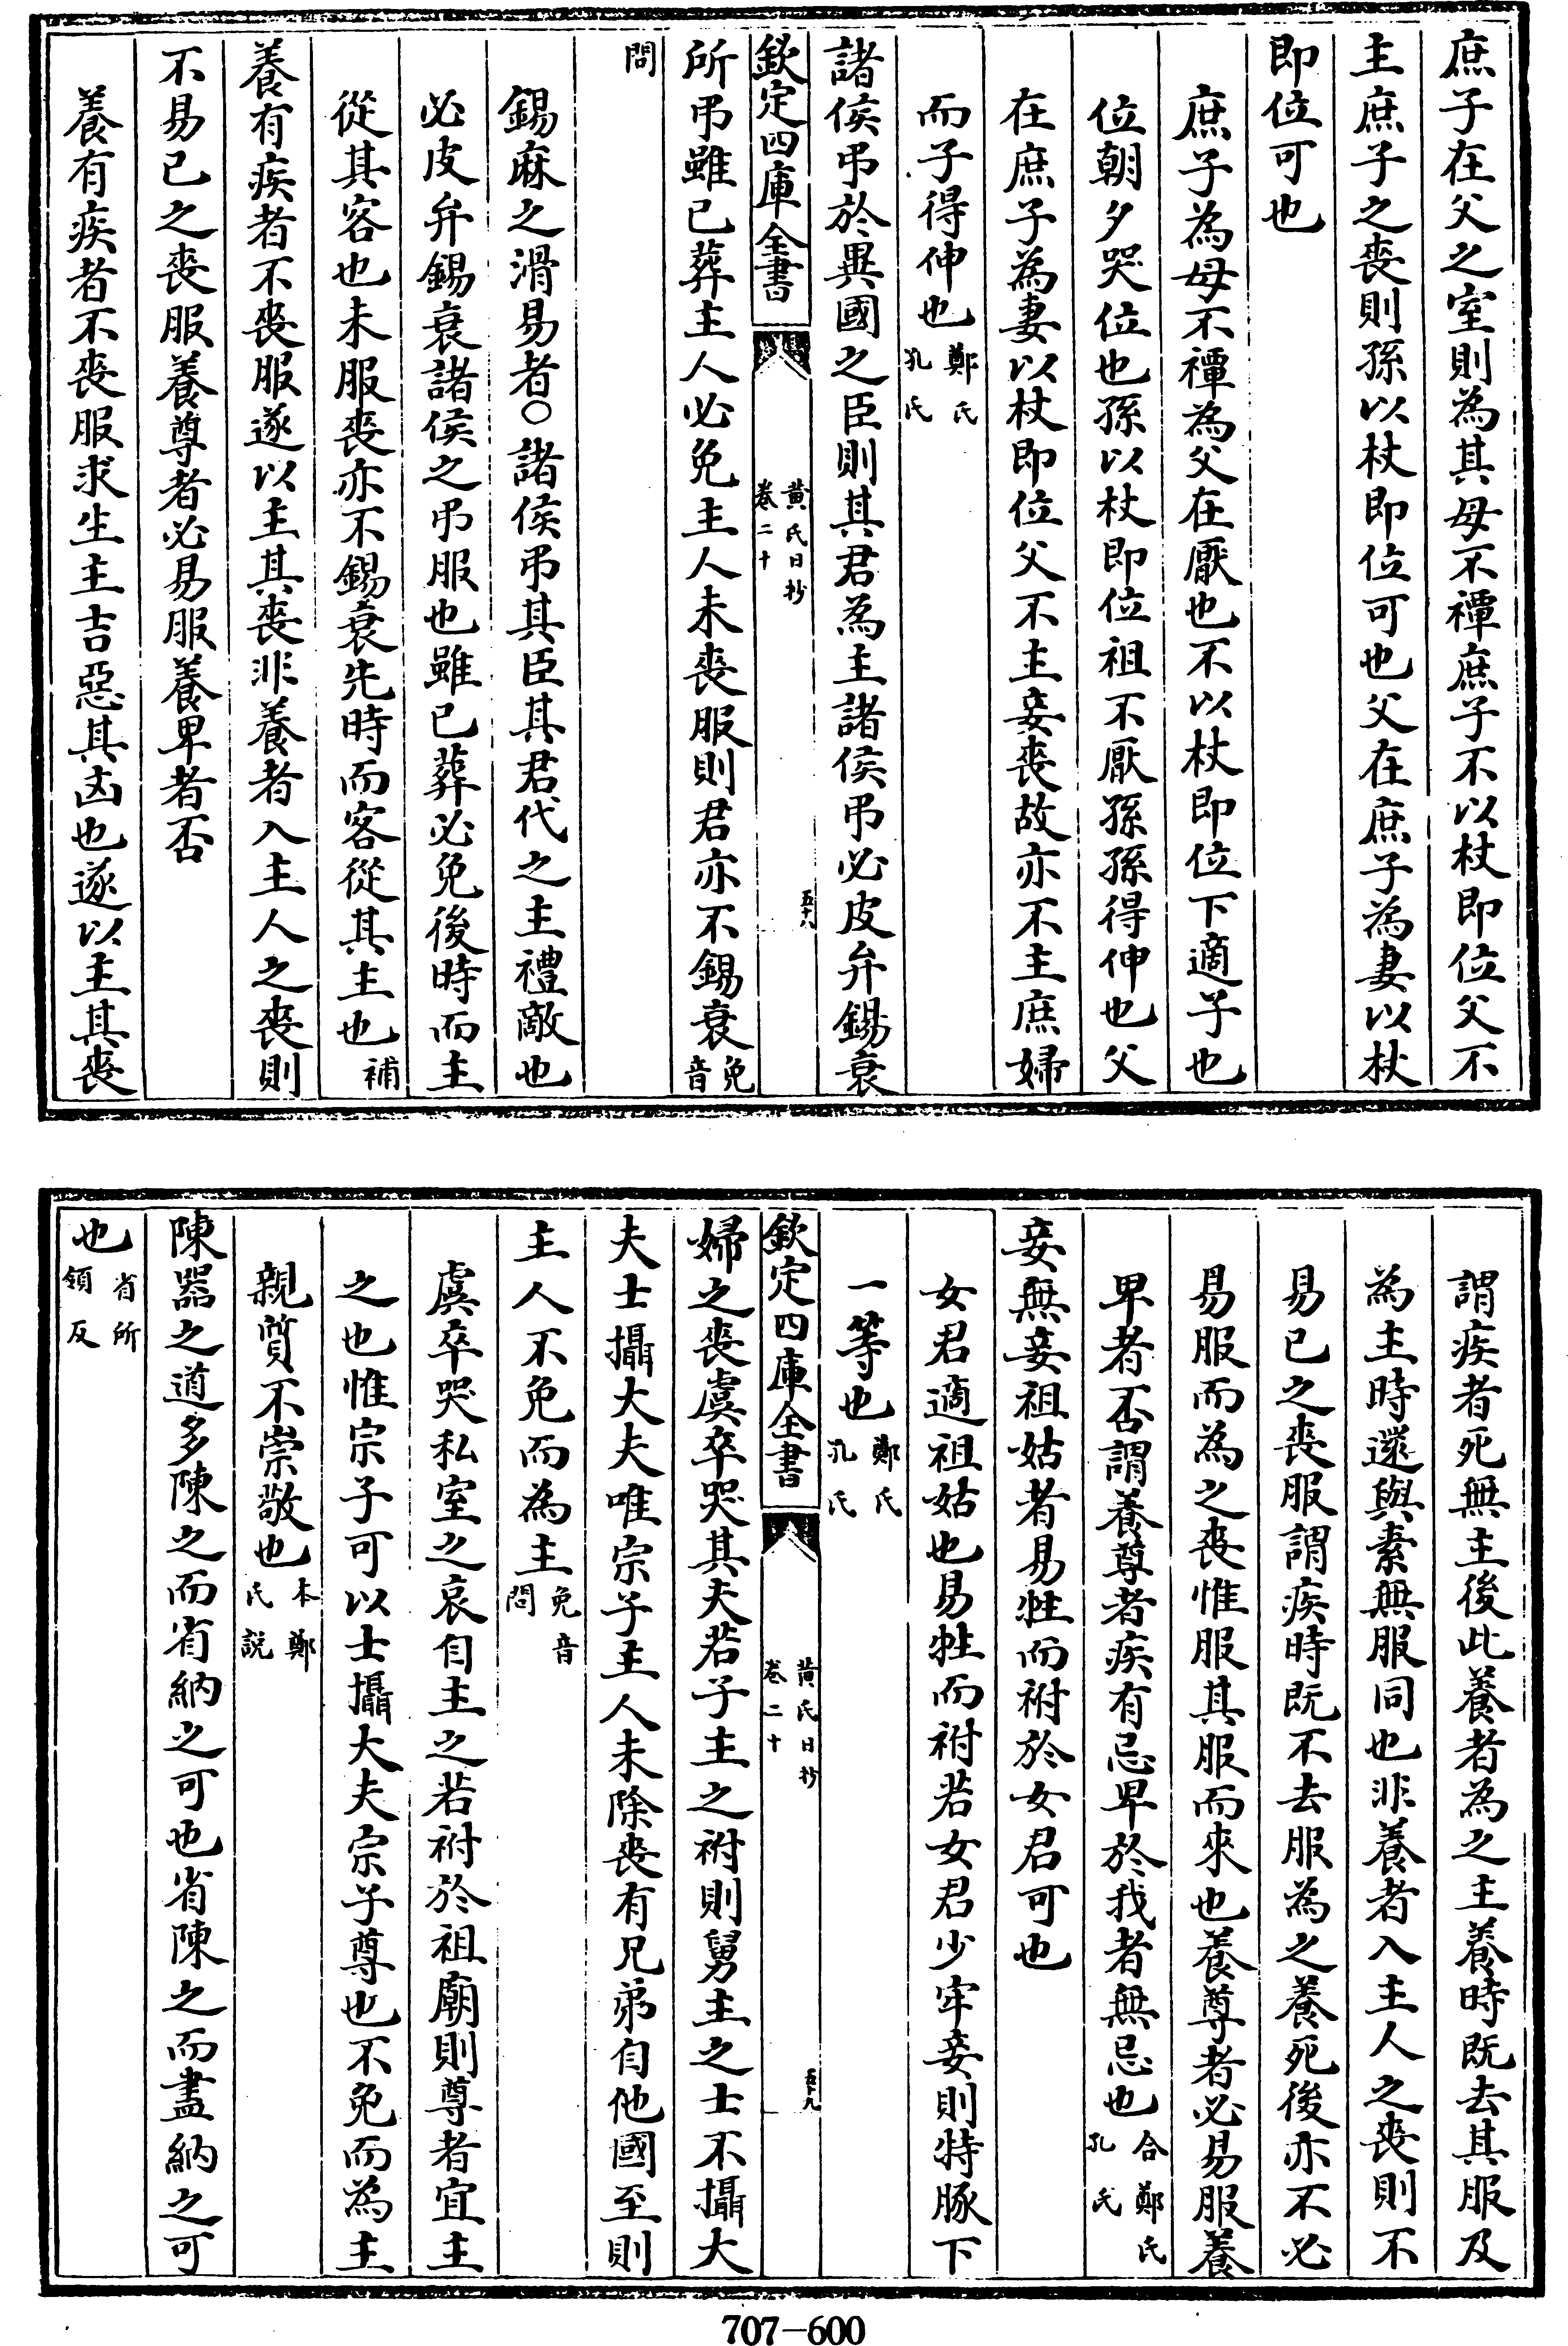 庶子在父之室則為其母不禫庶子不以杖即位父不
主庶子之喪則孫以杖即位可也父在庶子為妻以杖
即位可也
庶子為母不禫為父在厭也不以杖即位下適子也
位朝夕哭位也孫以杖即位祖不厭孫孫得伸也父
在庶子為妻以杖即位父不主妾喪故亦不主庶婦
而子得伸也鄭氏孔氏
諸侯弔於異國之臣則其君為主諸侯弔必皮弁錫衰
欽定四庫全書 黃氏日抄 卷二十 五十八
所弔雖已葬主人必免主人未喪服則君亦不錫衰免音
問
錫麻之滑易者○諸侯弔其臣其君代之主禮敵也
必皮弁錫衰諸侯之弔服也雖已葬必免後時而主
從其客也未服喪亦不錫衰先時而客從其主也補
養有疾者不喪服遂以主其喪非養者入主人之喪則
不易已之喪服養尊者必易服養卑者否
養有疾者不喪服求生主吉惡其凶也遂以主其喪
謂疾者死無主後此養者為之主養時既去其服及
為主時還與素無服同也非養者入主人之喪則不
易已之喪服謂疾時既不去服為之養死後亦不必
易服而為之喪惟服其服而來也養尊者必易服養
卑者否謂養尊者疾有忌卑於我者無忌也合鄭氏孔氏
妾無妾祖姑者易牲而祔於女君可也
女君適祖姑也易牲而祔若女君少牢妾則特豚下
一等也鄭氏孔氏
欽定四庫全書 黃氏日抄 卷二十 五十九
婦之喪虞卒哭其夫若子主之祔則舅主之士不攝大
夫士攝大夫唯宗子主人未除喪有兄弟自他國至則
主人不免而為主免音問
虞卒哭私室之哀自主之若祔於祖廟則尊者宜主
之也惟宗子可以士攝大夫宗子尊也不免而為主
親質不崇敬也本鄭氏說
陳器之道多陳之而省納之可也省陳之而盡納之可
也省所領反
707-600